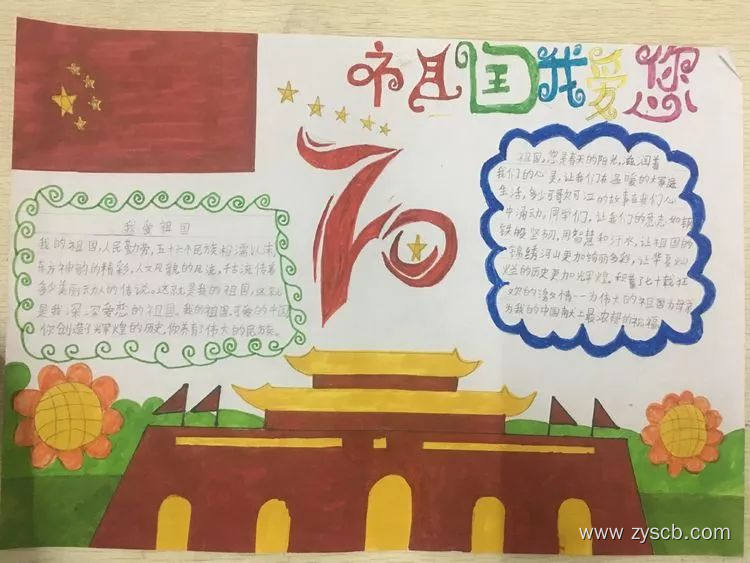 祖国我爱您
70
我爱祖国
我的祖国,人民勤劳,五十六个民族相濡以沫,
东方神韵的精彩,人文风貌的风流,千古流传着
多少美丽动人的传说。这就是我的祖国,这就
是我深深爱恋的祖国。我的祖国,可爱的中国
你创造了辉煌的历史,你养育了伟大的民族。
祖国,您是春天的阳光,滋润着
我们的心灵,让我们在温暖的大家庭
生活,多少可歌可泣的故事在我们心
中涌动,同学们,让我们的意志如钢
铁般坚韧,用智慧和汗水,让祖国的
锦绣河山更加绚丽多彩,让华夏灿
烂的历史更加辉煌。积蓄了七十载狂
欢的激情--为伟大的祖国为母亲
为我的中国献上最浓郁的祝福
www.zyscb.com